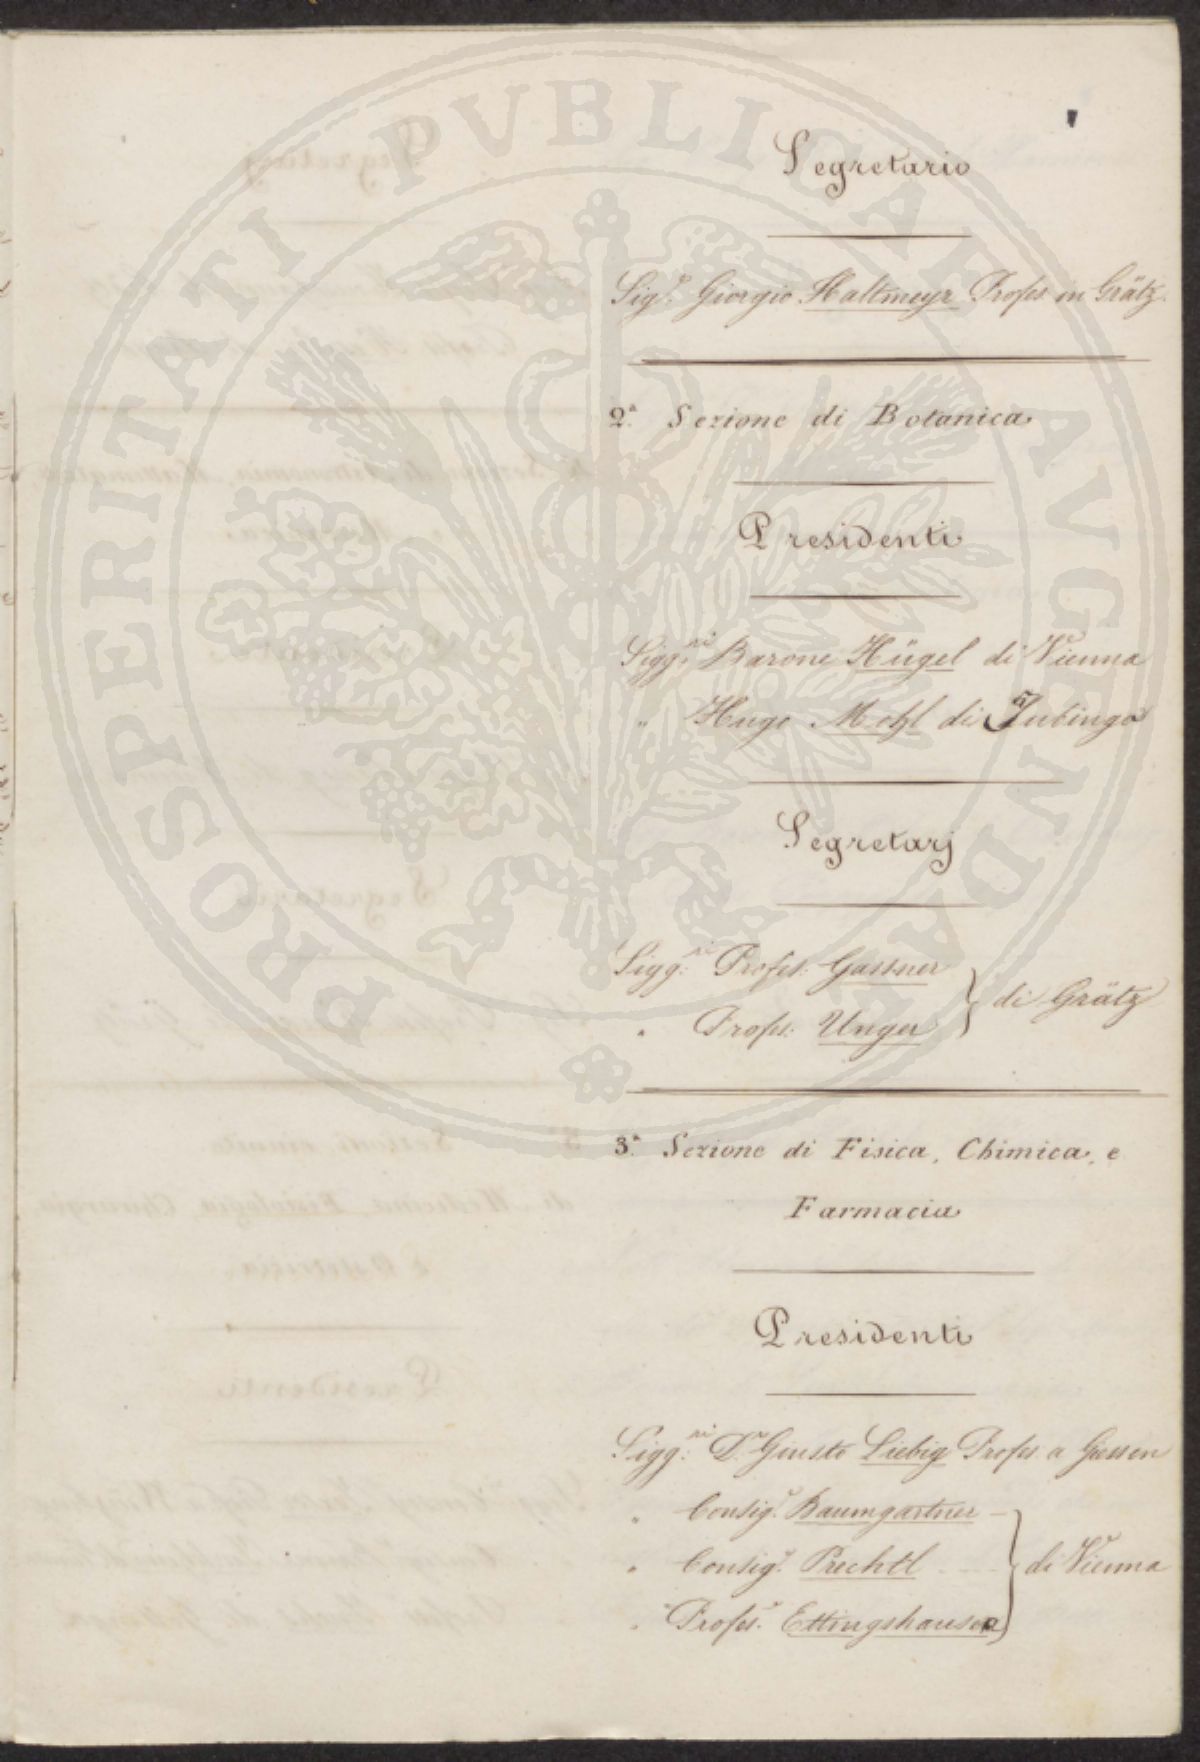 PROSPERITATI PVBLICAE AVGENDAE
Segretario
Sig.r Giorgio Haltmeyr Profes in Grätz.
2.a Sezione di Botanica
Presidenti
Sigg.ri Barone Hügel di Vienna
" Hugo Mohl di Tubinga
Segretarj
Sigg.ri Profes. Gassner
" Profes. Unger } di Grätz
3.a Sezione di Fisica, Chimica, e
Farmacia
Presidenti
Sigg.ri D.r Giusto Liebig Profes. a Giessen
" Consig.r Baumgartner
" Consig.r Prechtl } di Vienna
" Profes.r Ettingshausen